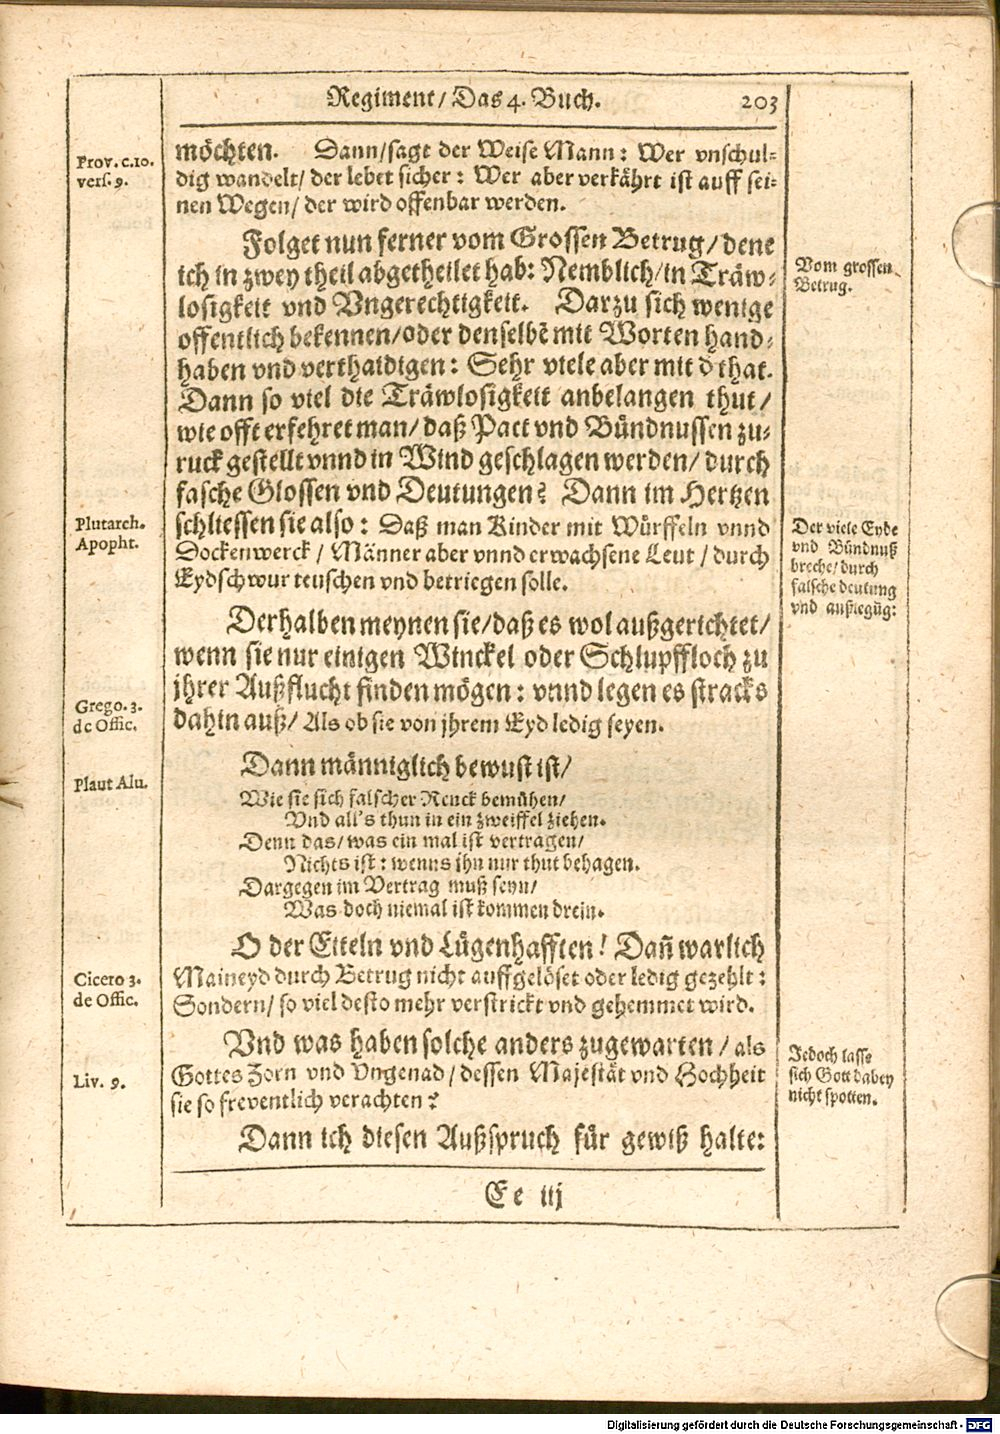 Regiment/ Das 4. Buch. 203
Prov. c.10.
vers. 9.
möchten. Dann/sagt der Weise Mann: Wer vnschul-
dig wandelt/ der lebet sicher: Wer aber verkährt ist auff sei-
nen Wegen/ der wird offenbar werden.
Folget nun ferner vom Grossen Betrug/dene
ich in zwey theil abgetheilet hab: Nemblich/in Träw-
losigkeit vnd Vngerechtigkeit. Darzu sich wenige
offentlich bekennen/oder denselbē mit Worten hand-
haben vnd verthaidigen: Sehr viele aber mit d that.
Dann so viel die Träwlosigkeit anbelangen thut/
wie offt erfehret man/ daß Pact vnd Bündnussen zu-
ruck gestellt vnnd in Wind geschlagen werden/ durch
fasche Glossen vnd Deutungen? Dann im Hertzen
schliessen sie also: Daß man Kinder mit Würffeln vnnd
Dockenwerck/ Männer aber vnnd erwachsene Leut/ durch
Eydschwur teuschen vnd betriegen solle.
Vom grossen
Betrug.
Plutarch.
Apopht.
Der viele Eyde
vnd Bündnuß
breche/durch
falsche deutung
vnd außlegūg:
Derhalben meynen sie/daß es wol außgerichtet/
wenn sie nur einigen Winckel oder Schlupffloch zu
jhrer Außflucht finden mögen: vnnd legen es stracks
dahin auß/ Als ob sie von jhrem Eyd ledig seyen.
Grego. 3.
de Offic.
Dann männiglich bewust ist/
Plaut Alu.
Wie sie sich falscher Renck bemühen/
Vnd all's thun in ein zweiffel ziehen.
Denn das/was ein mal ist vertragen/
Nichts ist: wenns jhn nur thut behagen.
Dargegen im Vertrag muß seyn/
Was doch niemal ist kommen drein.
O der Eiteln vnd Lügenhafften! Dañ warlich
Maineyd durch Betrug nicht auffgelöset oder ledig gezehlt:
Sondern/ so viel desto mehr verstrickt vnd gehemmet wird.
Cicero 3.
de Offic.
Vnd was haben solche anders zugewarten/ als
Gottes Zorn vnd Vngenad/ dessen Majestät vnd Hochheit
sie so freventlich verachten?
Liv. 9.
Jedoch lasse
sich Gott dabey
nicht spotten.
Dann ich diesen Außspruch für gewiß halte:
Ee iij
Digitalisierung gefördert durch die Deutsche Forschungsgemeinschaft - DFG